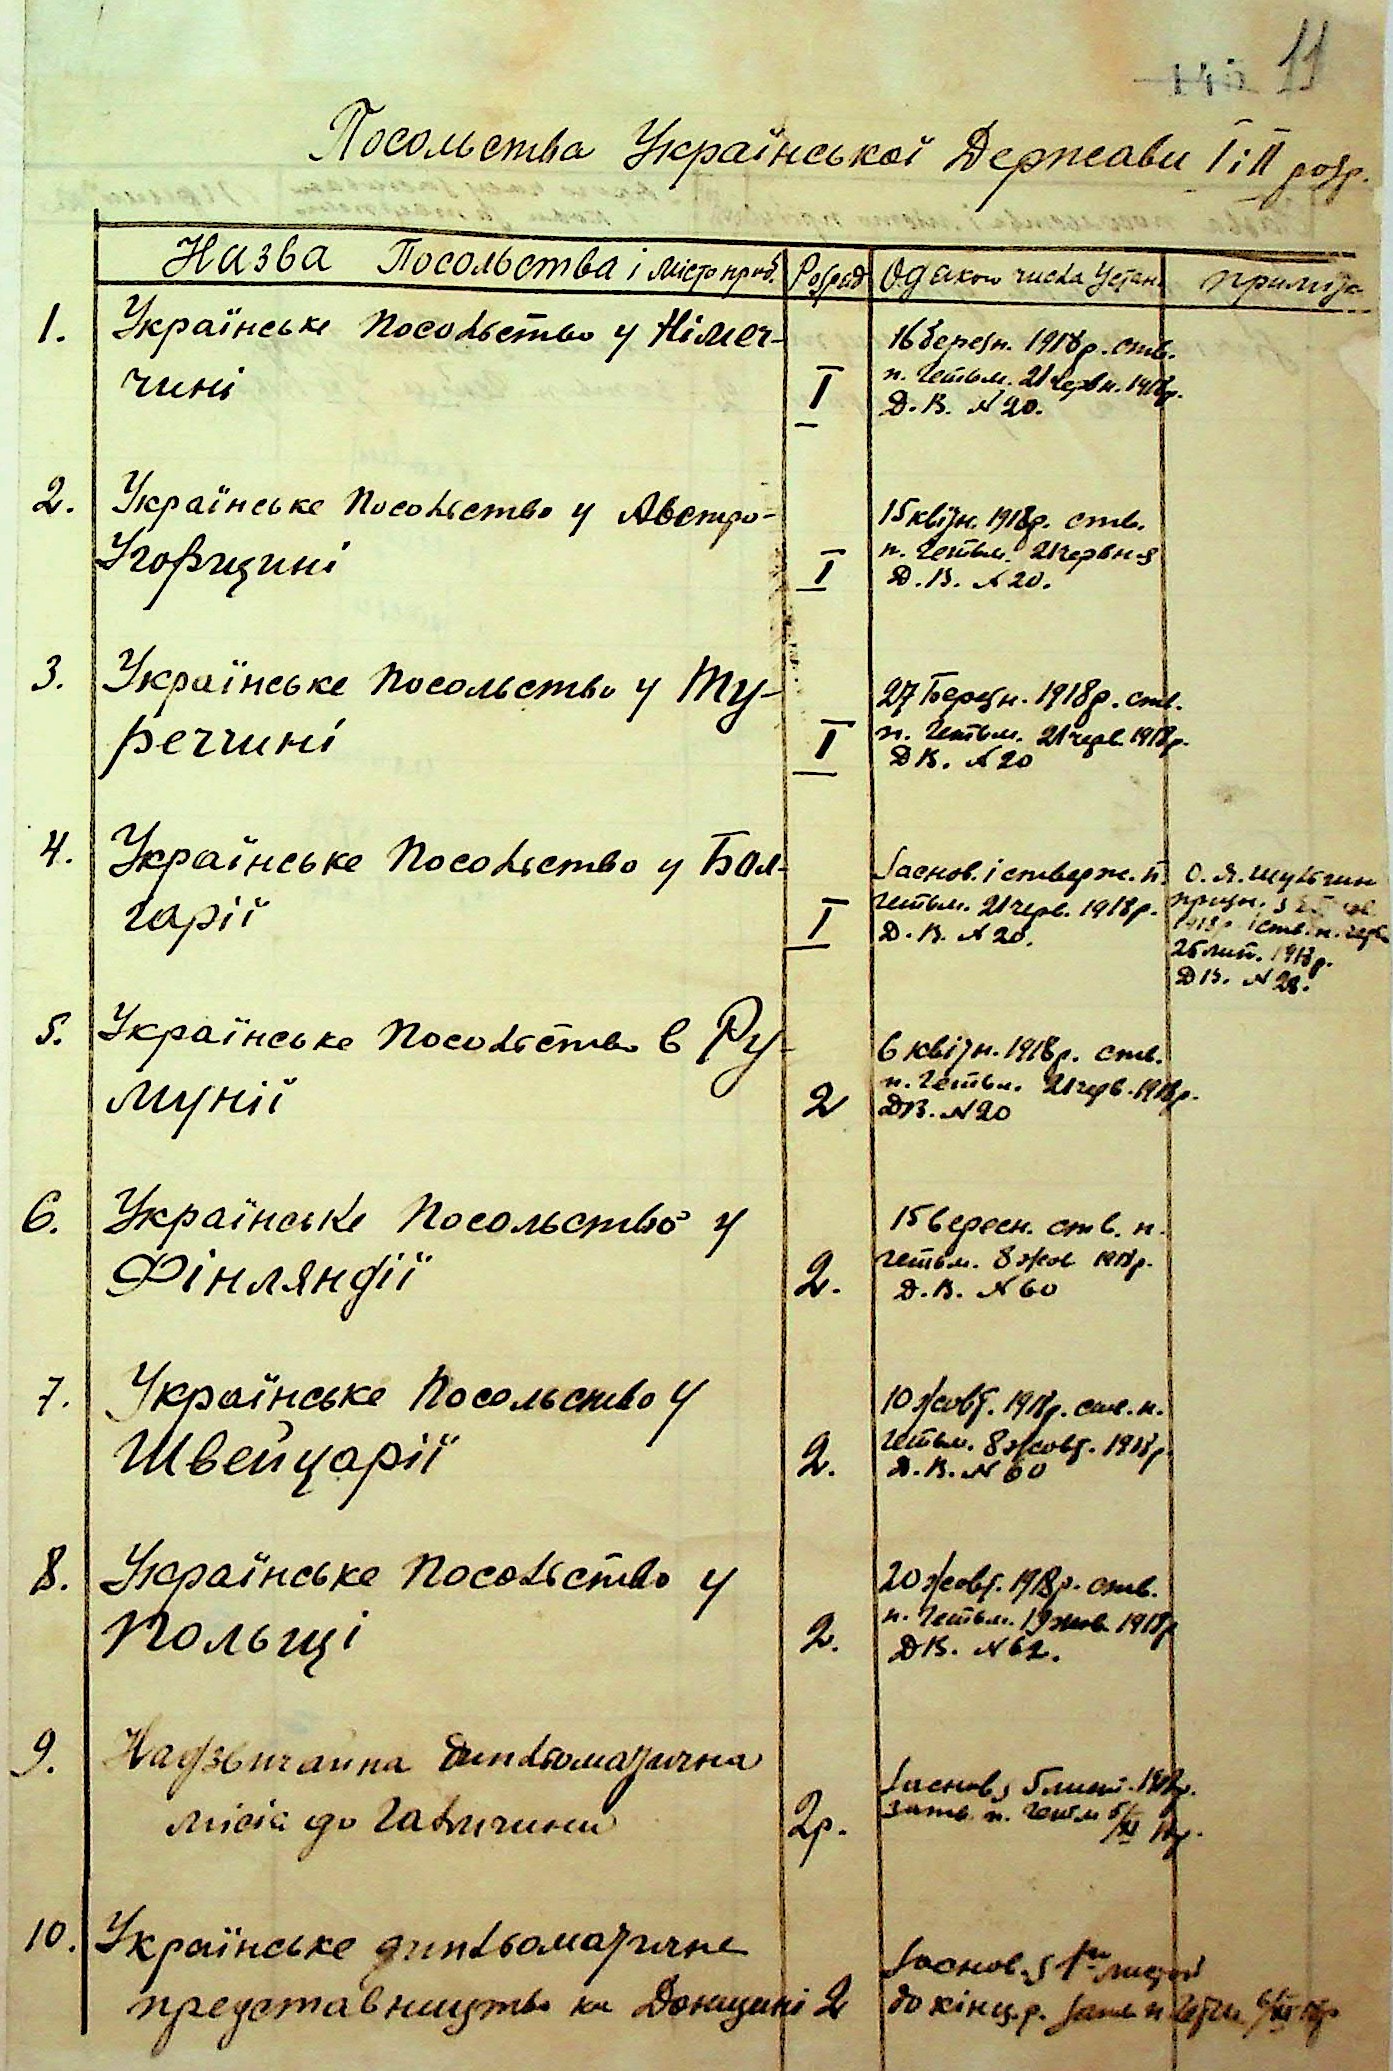 11
Посольства Української Держави І і ІІ розр.
Назва Посольства і місто преб. Розряд Од якого числа устан. приміт.
1. Українське посольство у Німеч-
чині І
16 березн. 1918 р. ств.
п. Гетьм. 21 червн. 1918 р.
Д. В. № 20.
2. Українське посольство у Австро-
Угорщині І
15 квітн. 1918 р. ств.
п. Гетьм. 21 червн.
Д. В. № 20.
3. Українське посольство у Ту-
реччині І
27 Березн. 1918 р. ств.
п. Гетьм. 21 черв. 1918 р.
Д В. № 20
4. Українське посольство у Бол-
гарії І
Заснов. і стверж. п.
Гетьм. 21 черв. 1918 р.
Д. В. № 20.
О. Я. Шульгин
призн. з
1918 р. і ств. п.
26 лип. 1918 р.
Д В. № 28.
5. Українське посольство в Ру-
мунії 2
6 квітн. 1918 р. ств.
п. Гетьм. 21 черв. 1918 р.
ДВ. № 20
6. Українське посольство у
Фінляндії 2.
15 вересн. ств. п.
Гетьм. 8 жов 1918 р.
Д. В. № 60
7. Українське посольство у
Швейцарії 2.
10 жовт. 1918 р. ств. п.
Гетьм. 8 жовт. 1918 р.
Д. В. № 60
8. Українське посольство у
Польщі 2.
20 жовт. 1918 р. ств.
п. Гетьм. 19 жов. 1918 р
ДВ. № 62.
9. Надзвичайна дипльоматична
місія до Галичини 2 р.
Заснов. з 5 лист. 1918 р.
затв. п. Гетьм
10. Українське дипльоматичне
представництво на Донщині 2
Заснов. з 1го
до кінц. р. затв п Гетм.